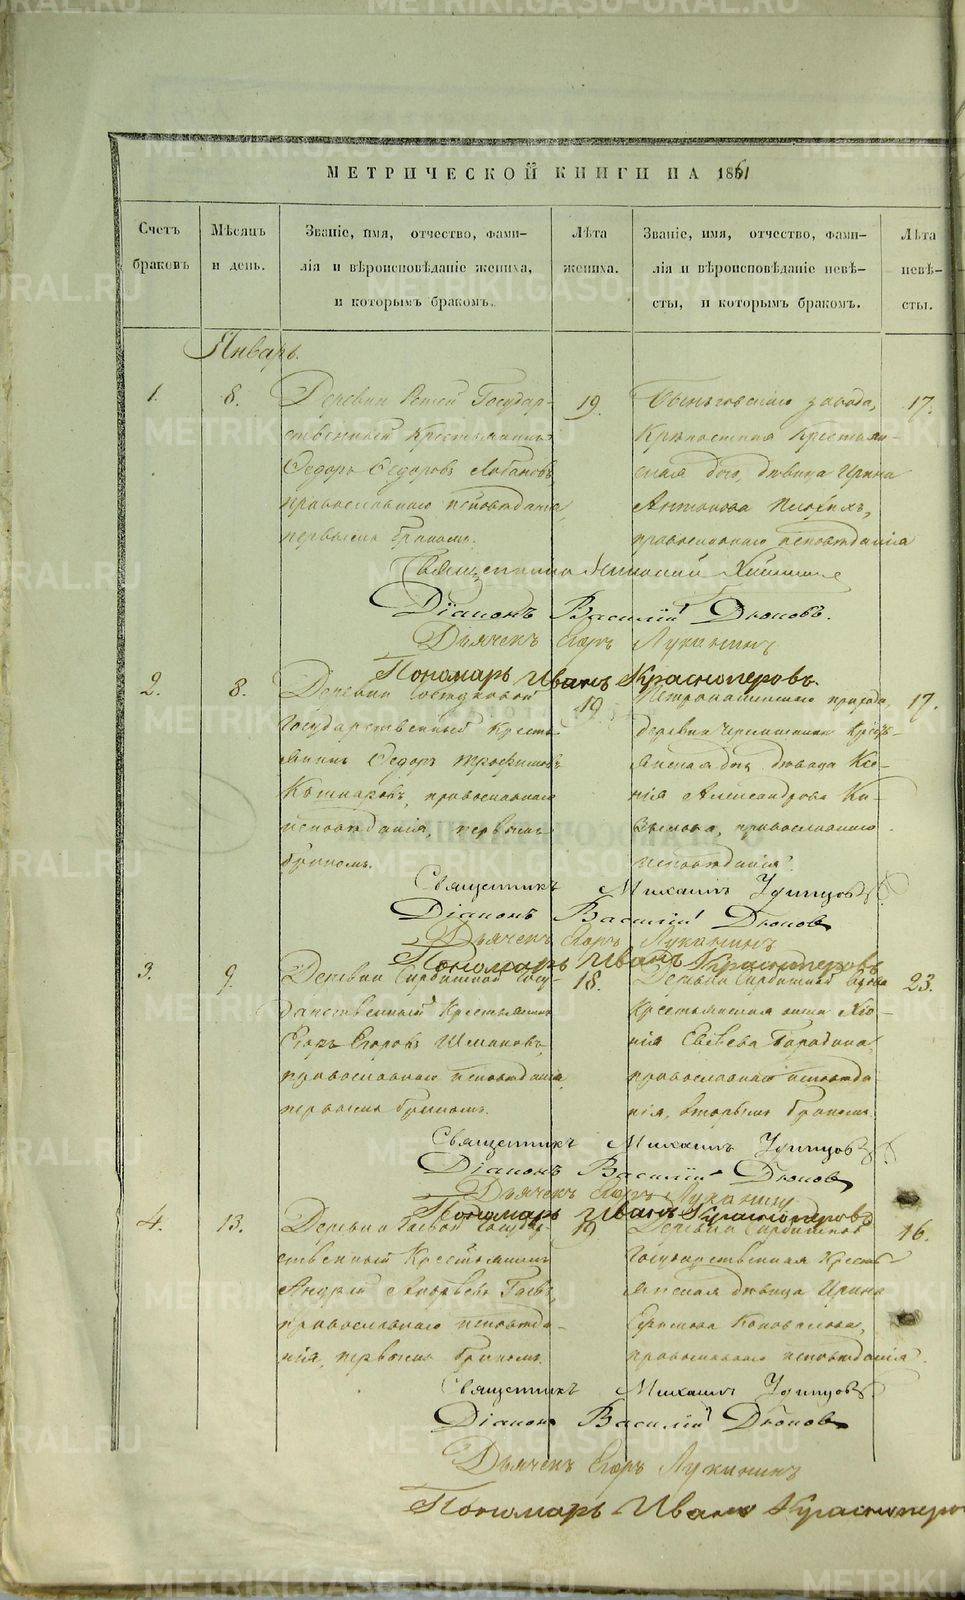 МЕТРИЧЕСКОЙ КНИГИ НА 1861
Счетъ
браковъ
Мѣсяцъ
и день.
Званіе, имя, отчество, фами-
лія и вѣроисповѣданіе жениха,
и которымъ бракомъ.
Лѣта
жениха.
Званіе, имя, отчество, фами-
лія и вѣроисповѣданіе невѣ-
сты, и которымъ бракомъ.
Лѣта
невѣ-
сты.
Январь.
1.
8.
Деревни Государ-
ственный Крестьянинъ
Ѳедоръ Ѳедоровъ Лобановъ
православнаго исповѣданія,
первымъ бракомъ.
19.
завода,
Крѣпостная Крестьян-
ская дѣвица Ирина
Антонова
православнаго исповѣданія
17.
Священникъ Николай
Діаконъ Василій Дюковъ.
Дьячекъ Егоръ Лукининъ
Пономарь Иванъ Красноперовъ.
2.
8.
Деревни
Государственный Кресть-
янинъ Ѳедоръ Трофимовъ
православнаго
исповѣданія, первымъ
бракомъ.
19
прихода,
деревни Кресть-
янская дѣвица Ксе-
нія Александрова
православнаго
исповѣданія.
17.
Священникъ Михаилъ Удинцовъ
Діаконъ Василій Дюковъ
Дьячекъ Егоръ Лукининъ
Пономарь Иванъ Красноперовъ
3.
9.
Деревни Сарбишной Госу-
дарственный Крестьянинъ
Егоръ Егоровъ Шмаковъ,
православнаго исповѣданія
первымъ бракомъ.
18.
Деревни Сарбишной
Крестьянская
нія
православнаго исповѣда-
нія, вторымъ бракомъ.
23.
Священникъ Михаилъ Удинцовъ
Діаконъ Василій Дюковъ
Дьячекъ Егоръ Лукининъ
Пономарь Иванъ Красноперовъ
4.
13.
Деревни Государ-
ственный Крестьянинъ
Андрей Андреевъ
православнаго исповѣда-
нія, первымъ бракомъ.
19
Деревни Сарбишной
Государственная Кресть-
янская дѣвица Ирина
Ефимова Коновалова,
православнаго исповѣданія.
16.
Священникъ Михаилъ Удинцовъ.
Діаконъ Василій Дюковъ
Дьячекъ Егоръ Лукининъ
Пономарь Иванъ Красноперо
METRIKI.GASO-URAL.RU